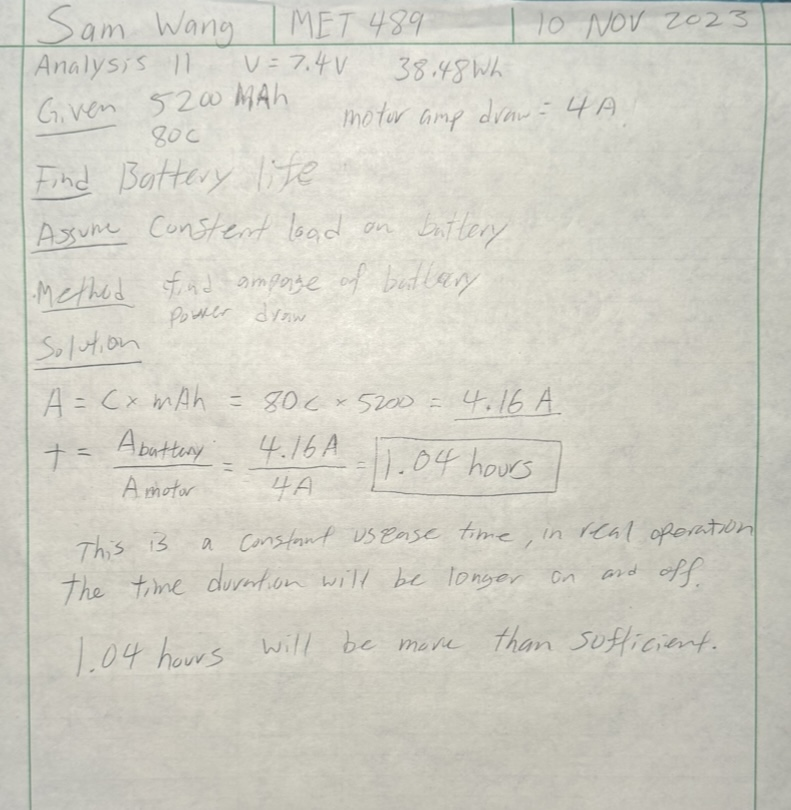 Sam Wang MET 489 10 NOV 2023
Analysis 11 V = 7.4V 38.48Wh
Given 5200 MAh motor amp draw = 4A
80C
Find Battery life
Assume Constent load on battery
Method find ampage of battery
power draw
Solution
A = C x mAh = 80C x 5200 = 4.16 A
t = Abattery / Amotor = 4.16A / 4A = 1.04 hours
This is a constant usease time, in real operation
the time duration will be longer on and off.
1.04 hours will be more than sufficient.